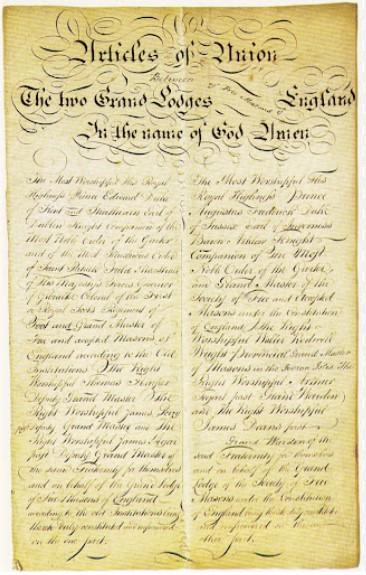 Articles of Union
Between
The two Grand Lodges of Free Masons of England
In the name of God Amen
The Most Worshipful His Royal
Highness Prince Edward Duke
of Kent and Strathearn Earl of
Dublin Knight Companion of the
Most Noble Order of the Garter
and of the Most Illustrious Order
of Saint Patrick Field Marshal
of His Majesty's Forces Governor
of Gibraltar Colonel of the First
or Royal Scots Regiment of
Foot and Grand Master of
Free and accepted Masons of
England according to the Old
Institutions The Right
Worshipful Thomas Harper
Deputy Grand Master The
Right Worshipful James Perry
past Deputy Grand Master and The
Right Worshipful James Agar
past Deputy Grand Master of
the same Fraternity for themselves
and on behalf of the Grand Lodge
of Free Masons of England
according to the old Institutions being
thereto duly constituted and empowered
on the one part.
The Most Worshipful His
Royal Highness Prince
Augustus Frederick Duke
of Sussex Earl of Inverness
Baron Arklow Knight
Companion of the Most
Noble Order of the Garter
and Grand Master of the
Society of Free and Accepted
Masons under the Constitution
of England The Right
Worshipful Waller Rodwell
Wright Provincial Grand Master
of Masons in the Ionian Isles The
Right Worshipful Arthur
Tegart past Grand Warden
and The Right Worshipful
James Deans past
Grand Warden of the
same Fraternity for themselves
and on behalf of the Grand
Lodge of the Society of Free
Masons under the Constitution
of England being thereto duly constituted
and empowered on the
other part.